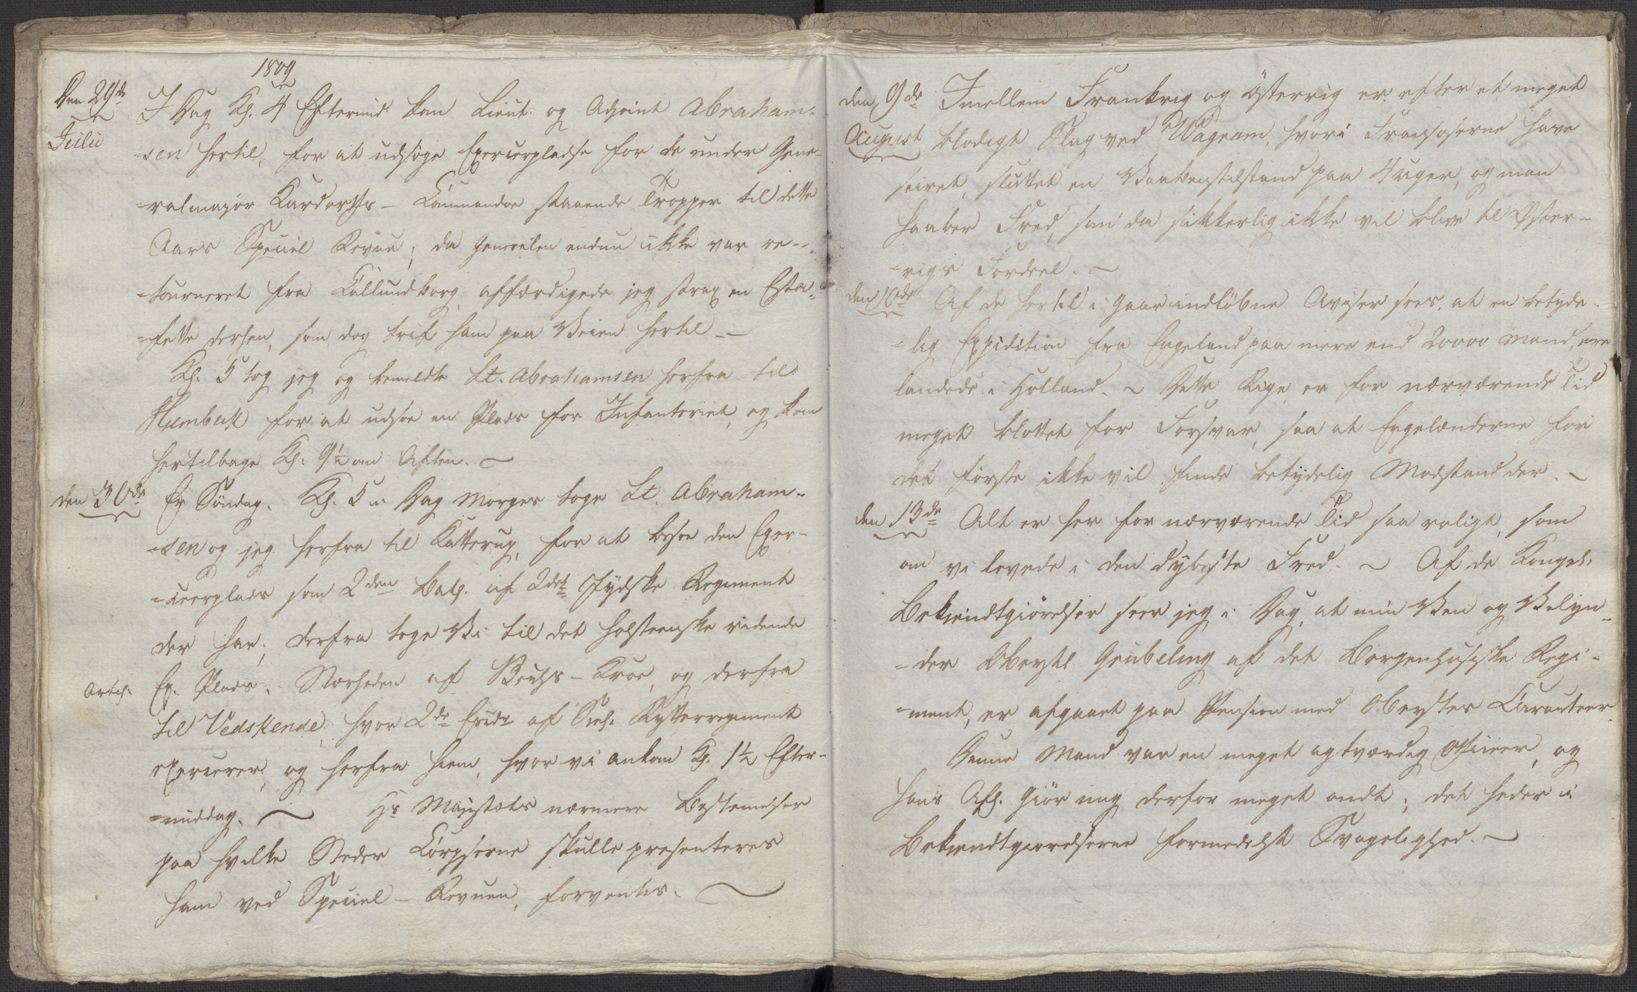 1809
Den 29de I Dag Kl. 4 Eftermid kom Lieut. og Adjoint Abraham-
Julii -sen hertil, for at udsøge Exerceerpladse for de under Gene-
-ralmajør Kardorffs - Commandoe staaende Tropper til dette
Aars Speciel Revue; da Generalen endnu ikke var re-
-tourneret fra Callundborg, affærdigede jeg strax en Esta-
-fette derhen, som dog traf ham paa Veien hertil. —
Kl. 5 tog jeg og bemeldte Lt. Abrahamsen herfra til
Humbek for at udsøe en Plads for Infanteriet, og kom
hertilbage Kl. 9½ om Aften. —
den 30de Er Søndag. Kl. 5 i Dag Morges toge Lt. Abraham-
-sen og jeg herfra til Katterup, for at besee den Exer-
-ceerplads som 2den Bat. af 2det Jydske Regiment
der har; derfra toge Vi til det holsteenske ridende
Artil. Ex. Plads, Nærheden af Kroe, og derfra
til Vedskende, hvor 2de af Siel. Rytterregiment
exercerer, og herfra hiem, hvor vi ankom Kl. 1½ Efter-
-middag. — Hs Majestæts nærmere Bestemmelser
paa hvilke Steder Corpserne skulle presenteres
ham ved Speciel-Revuen, forventes. —
den 9de Imellem Frankrig og Østerrig er efter et meget
August blodigt Slag ved Wagram, hvori Fransoserne have
seiret, sluttet en Vaabenstilstand paa 4 uger, og man
haaber Fred, som da sikkerlig ikke vil blive til Øster-
-rigs Fordeel. —
den 10de Af de hertil i Gaar indløbne Aviser sees, at en betyde-
-lig Expedition fra Engeland paa mere end 20000 Mand, ere
landede i Holland. — Dette Rige er for nærværende Tid
meget blottet for Forsvar, saa at Engelænderne for
det første ikke vil finde betydelig Modstand der. —
den 13de Alt er her for nærværende Tid saa roligt, som
om vi levede i den dybeste Fred. — Af de Kongel.
Bekiendtgiørelser seer jeg i Dag, at min Ven og Velyn-
-der Oberstl. Grübeling af det Bergenhusiske Regi-
-ment, er afgaaet paa Pension med Obersters Caracteer.
Denne Mand var en meget agtværdig Officier, og
hans Afs. Giør mig derfor meget ondt; det heder i
Bekiendtgiørelserne formedelst Svagelighed. —